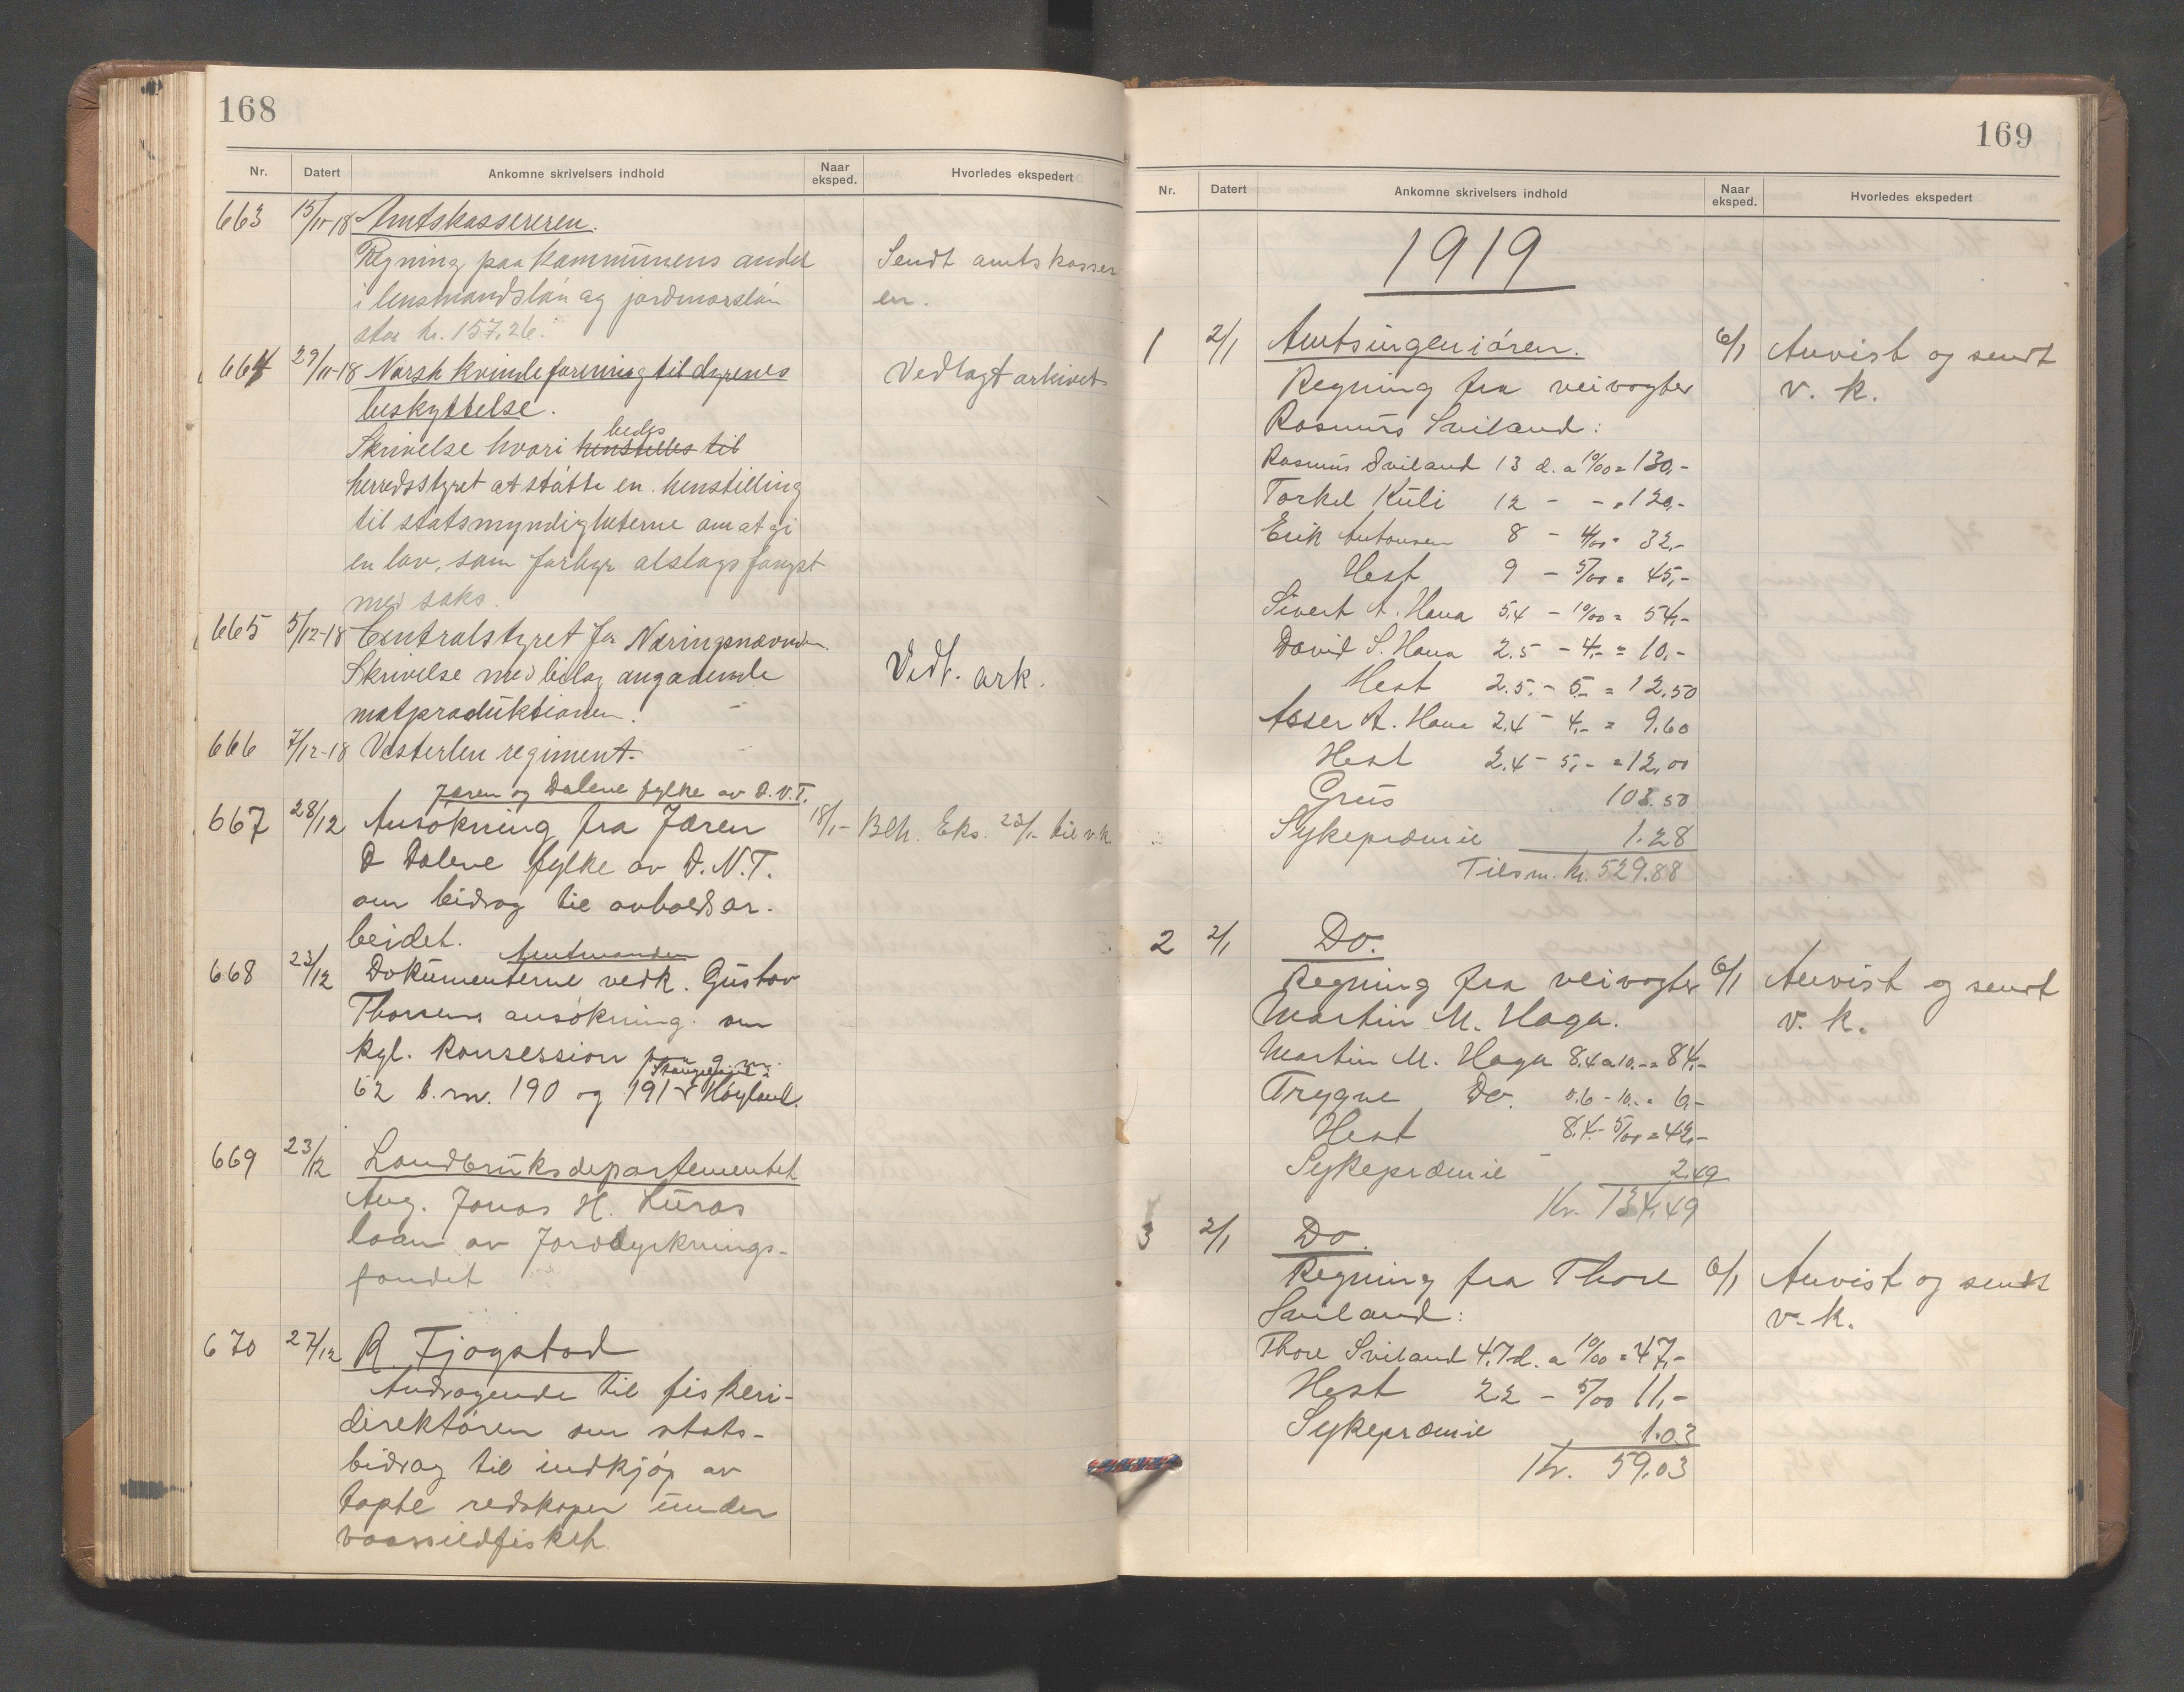 168
Nr. Datert Ankomne skrivelsers indhold Naar eksped. Hvorledes ekspedert
663 15/11-18 Amtskassereren.
Regning paa kommunens andel Sendt amtskasser
i lensmandsløn og jordmorsløn en.
stor kr. 157,26.
664 29/11-18 Norsk kvindeforening til dyrenes Vedlagt arkivet
beskyttelse.
bedes
Skrivelse hvori henstilles til
herredsstyret at støtte en henstilling
til statsmyndigheterne om at gi
en lov, som forbyr alslags fangst
med saks.
665 5/12-18 Centralstyret for Næringsnævnden.
Skrivelse med bilag angaaende Vedt. ark.
matproduktionen.
666 7/12-18 Vesterlen regiment.
Jæren og Dalene fylke av D.N.T.
667 28/12 Ansøkning fra Jæren 18/1- Beh. Eks. 23/1- til v.k.
& Dalene fylke av D.N.T.
om bidrag til avholdsar-
beidet.
Amtmanden
668 23/12 Dokumenterne vedk. Gustav
Thorsens ansøkning om
kgl. konsession paa g.nr.
Stangeland
62 b.nr. 190 og 191 Høyland.
669 23/12 Landbruksdepartementet
Ang. Jonas H. Luras
laan av Jorddyrknings-
fondet
670 27/12 R. Fjogstad
Andragende til fiskeri-
direktøren om stats-
bidrag til indkjøp av
tapte redskaper under
vaarsildfisket.
169
Nr. Datert Ankomne skrivelsers indhold Naar eksped. Hvorledes ekspedert
1919
1 2/1 Amtsingeniøren. 6/1 Anvist og sendt
Regning fra veivogter v. k.
Rasmus Sviland:
Rasmus Sviland 13 d. a 10/00 = 130,-
Torkel Kuli 12 - - = 120,-
Erik Antonsen 8 - 4/00 = 32,-
Hest 9 - 5/00 = 45,-
Sivert A. Hana 5.4 - 10/00 = 54,-
David S. Hana 2.5 - 4,- = 10,-
Hest 2.5. - 5,- = 12.50
Asser A. Hana 2.4 - 4,- = 9.60
Hest 2.4 - 5,- = 12,00
Grus 103.50
Sykepræmie 1.28
Tilsm. kr. 529.88
2 2/1 Do.
Regning fra veivogter 6/1 Anvist og sendt
Martin M. Haga. v. k.
Martin M. Haga 8.4 a 10.- = 84,-
Trygve Do. 0.6 - 10.- = 6,-
Hest 8.4 - 5/00 = 42,-
Sykepræmie 2.49
Kr. 134,49
3 2/1 Do.
Regning fra Thore 6/1 Anvist og sendt
Sviland: v. k.
Thore Sviland 4.7 d. a 10/00 = 47,-
Hest 2.2 - 5/00 11,-
Sykepræmie 1.03
Kr. 59,03